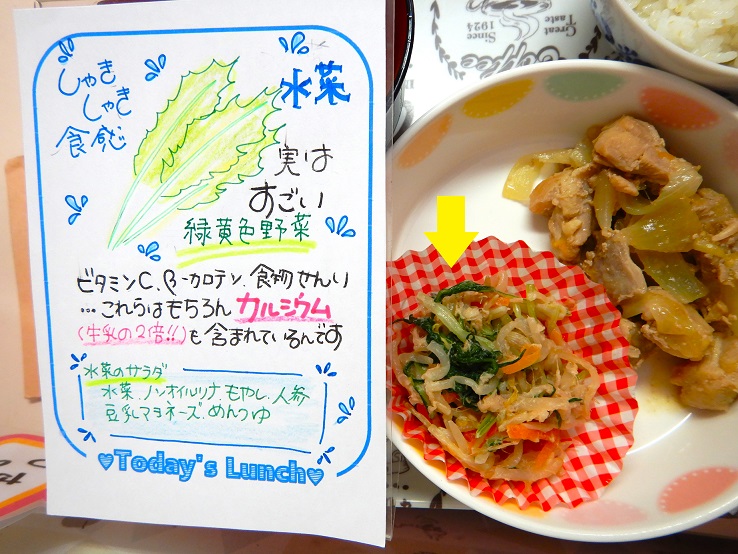 水菜
しゃき
しゃき
食感
実は
すごい
緑黄色野菜
ビタミンC、β-カロテン、食物せんい
…これらはもちろん カルシウム
(牛乳の2倍!!)も含まれているんです
水菜のサラダ
水菜、ノンオイルツナ、もやし、人参
豆乳マヨネーズ、めんつゆ
♥Today's Lunch♥
Since
1924
Great
Taste
Coffee